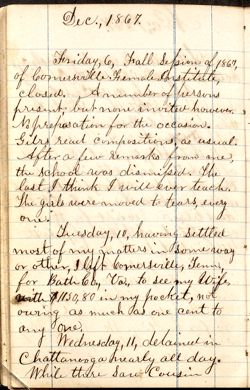 Dec., 1867.
Friday, 6, Fall Session of 1867,
of Cornersville Female Institute,
closed. A number of persons
present; but none invited however.
No preparation for the occasion.
Girls read compositions, as usual.
After a few remarks from me,
the school was dismissed. The
last I think I will ever teach.
The girls were moved to tears, every
one.
Tuesday, 10, having settled
most of my matters in some way
or other, I left Cornersville, Tenn,
for Bath Co., Va., to see my Wife,
with $1150,80 in my pocket, not
owing as much as one cent to
any one.
Wednesday, 11, detained in
Chattanooga nearly all day.
While there saw Cousin